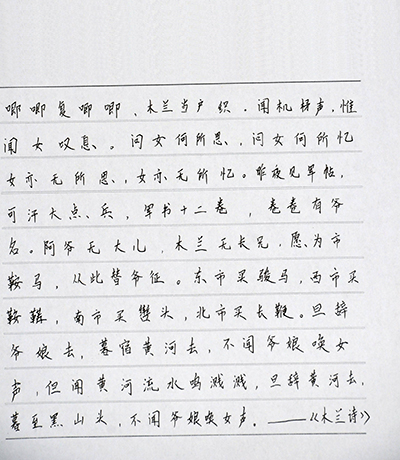 唧唧复唧唧，木兰当户织，闻机杼声，惟
闻女叹息。问女何所思，问女何所忆
女亦无所思，女亦无所忆。昨夜见军帖，
可汗大点兵，军书十二卷，卷卷有爷
名。阿爷无大儿，木兰无长兄，愿为市
鞍马，从此替爷征。东市买骏马，西市买
鞍鞯，南市买辔头，北市买长鞭。旦辞
爷娘去，暮宿黄河去，不闻爷娘唤女
声，但闻黄河流水鸣溅溅，旦辞黄河去，
暮至黑山头，不闻爷娘唤女声。——《木兰诗》